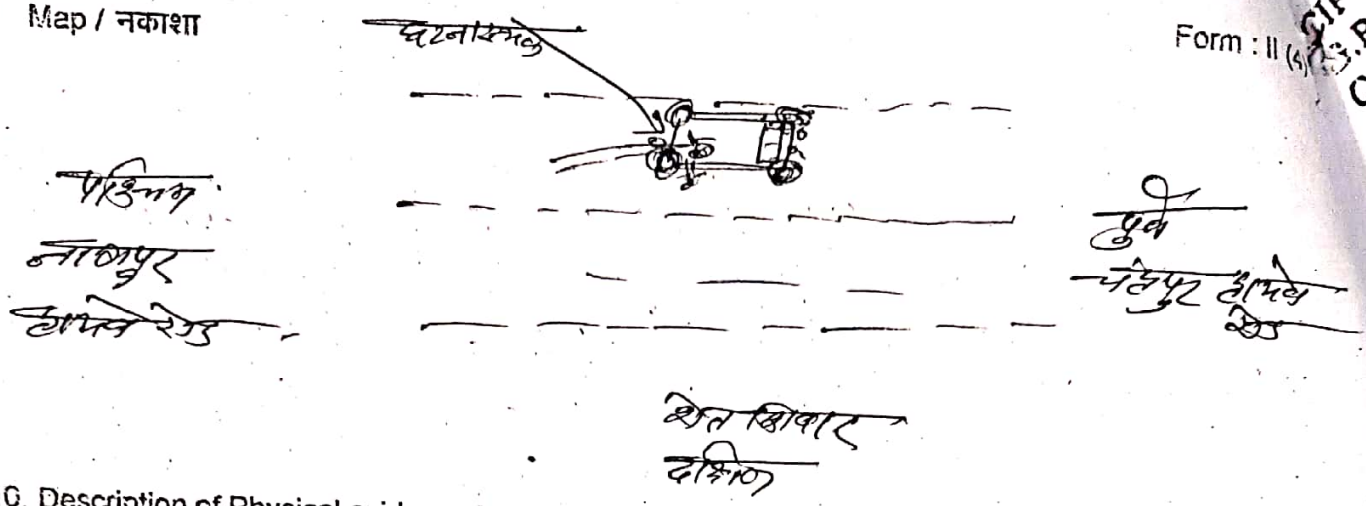 Map / नकाशा
घटनास्थळ
Form : II
पश्चिम
नागपुर
हायवे रोड
पुर्व
चंद्रपुर हायवे
रोड
शेत शिवार
दक्षिण
Description of Physical